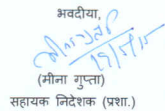 भवदीया,
(मीना गुप्ता)
सहायक निदेशक (प्रशा.)